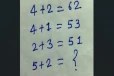 4+2=62
4+1=53
2+3=51
5+2=?